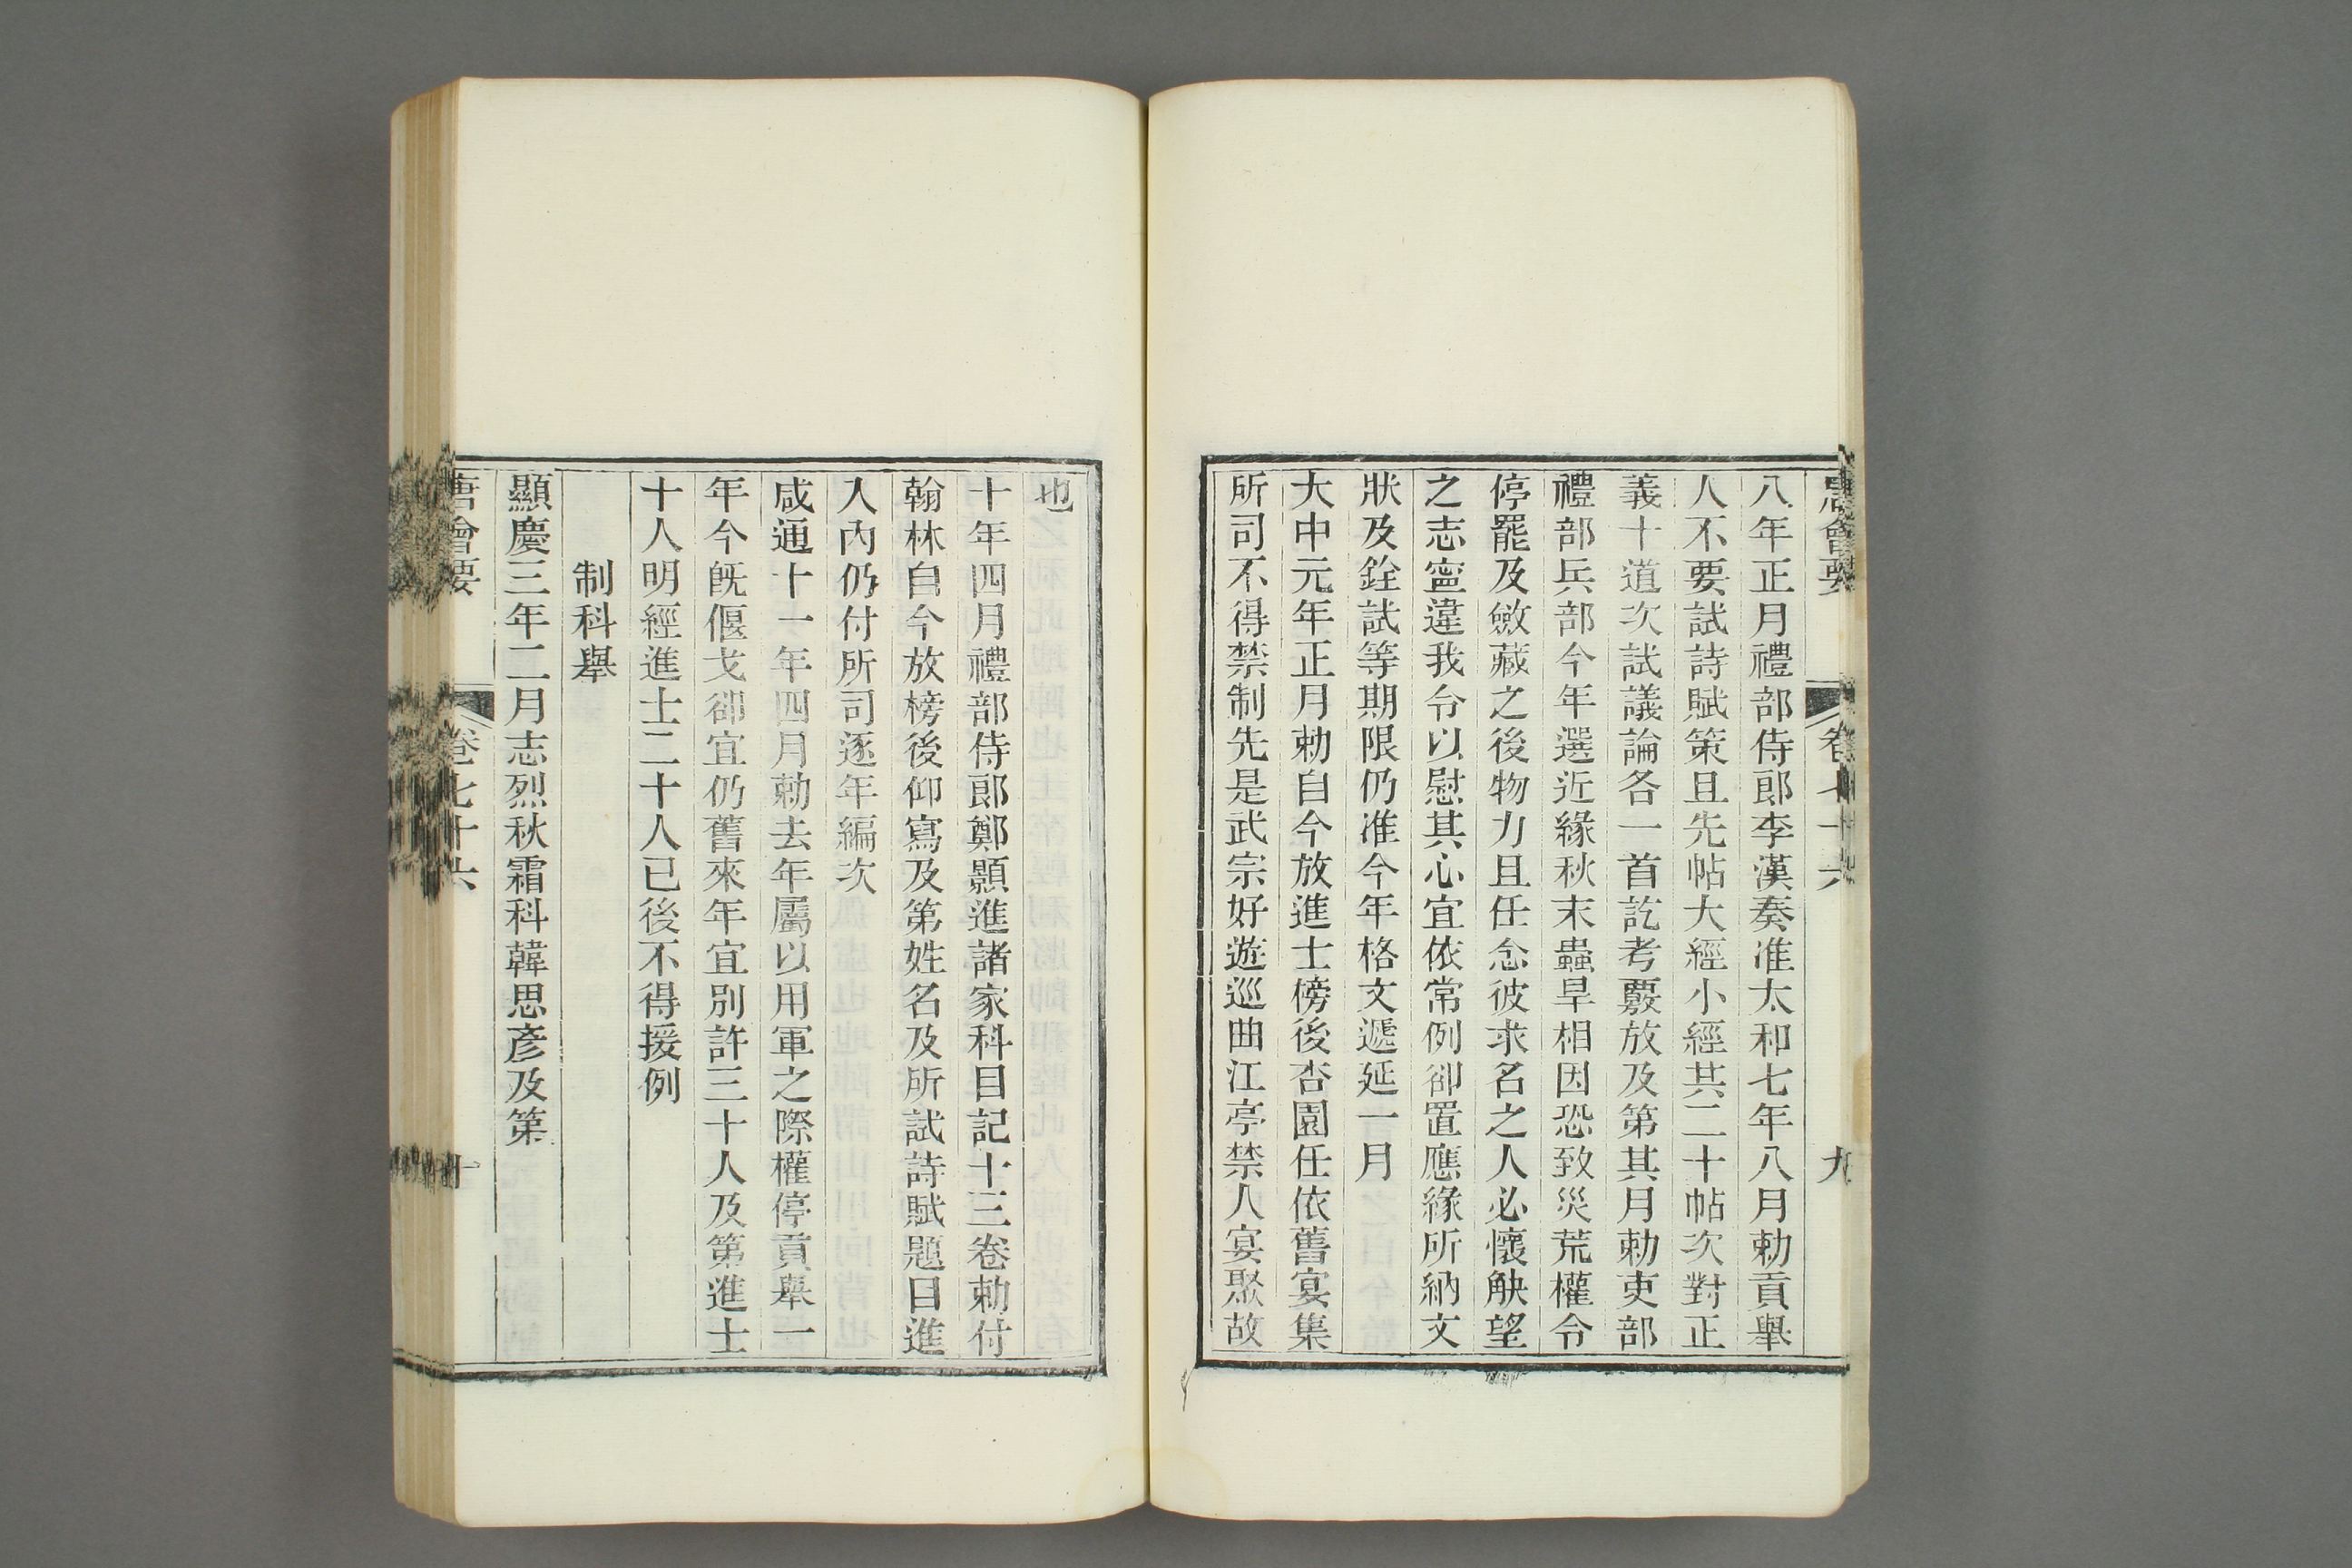 唐會要 卷七十六 九
八年正月禮部侍郎李漢奏准太和七年八月勅貢舉
人不要試詩賦策且先帖大經小經共二十帖次對正
義十道次試議論各一首訖考覈放及第其月勅吏部
禮部兵部今年選近緣秋末蟲旱相因恐致災荒權令
停罷及斂藏之後物力且任念彼求名之人必懷觖望
之志寧違我令以慰其心宜依常例卻置應緣所納文
狀及銓試等期限仍准今年格文遞延一月
大中元年正月勅自今放進士傍後杏園任依舊宴集
所司不得禁制先是武宗好遊巡曲江亭禁人宴聚故
也
十年四月禮部侍郎鄭顥進諸家科目記十三卷勅付
翰林自今放榜後仰寫及第姓名及所試詩賦題目進
入內仍付所司逐年編次
咸通十一年四月勅去年屬以用軍之際權停貢舉一
年今旣偃戈卻宜仍舊來年宜別許三十人及第進士
十人明經進士二十人已後不得援例
制科舉
顯慶三年二月志烈秋霜科韓思彥及第
唐會要 卷七十六 十